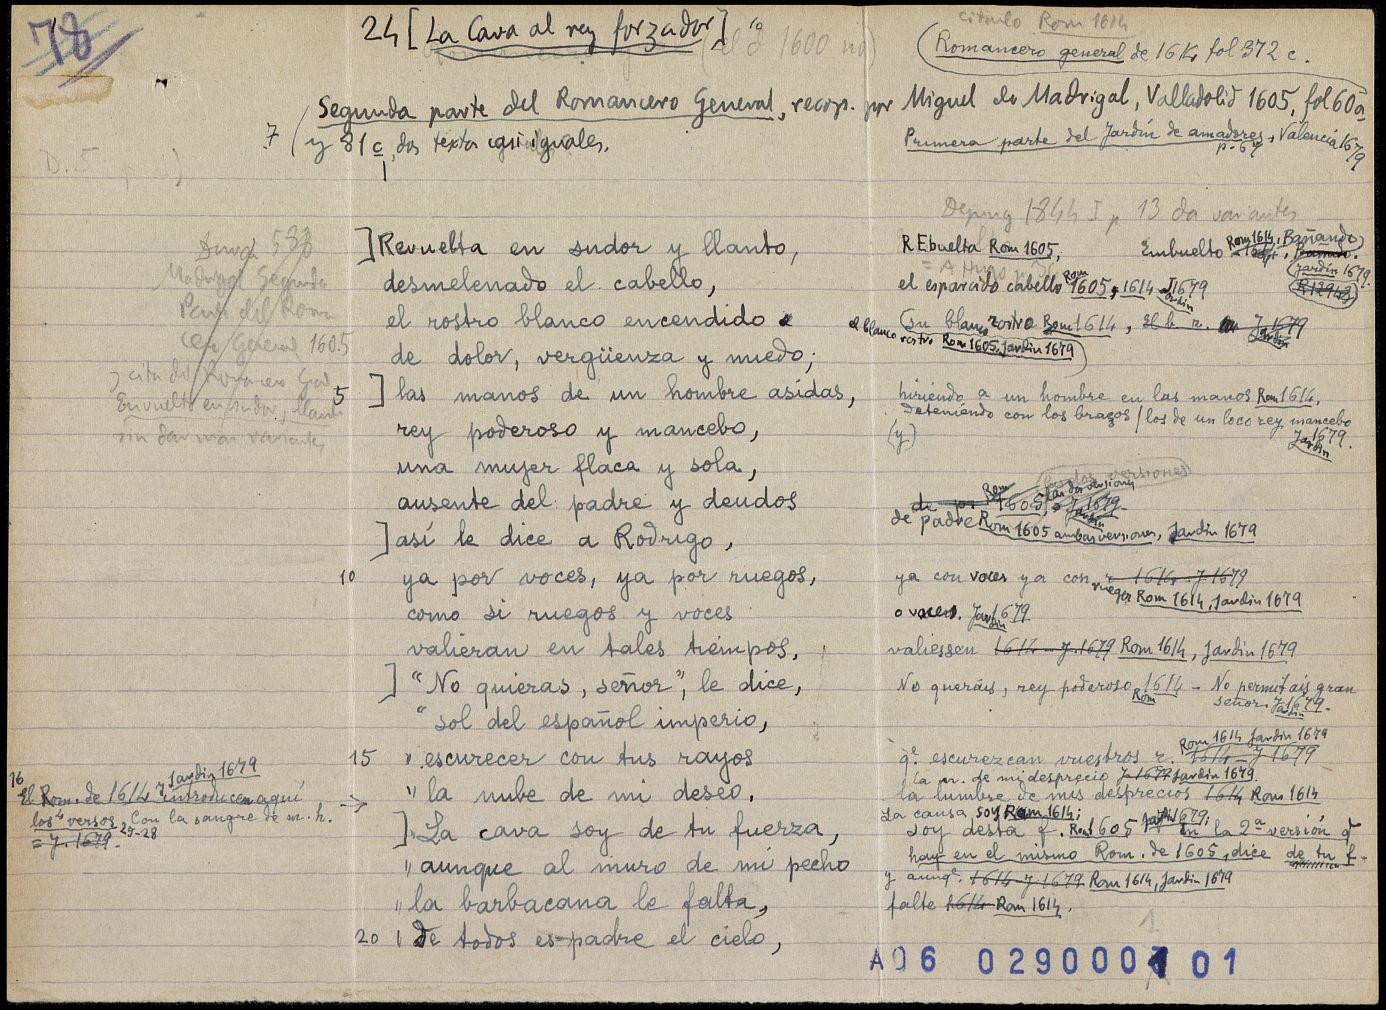 78
24 [La Cava al rey forzador]
(el d 1600 no)
citado Rom 1614
(Romancero general de 1614 fol 372 c.
Segunda parte del Romancero General, recop. por Miguel de Madrigal, Valladolid 1605, fol 60a
7 (y 81c, dos textos casi iguales.
Primera parte del Jardín de amadores, Valencia 1679
p. 67
Depping 1844 I p 13 da variantes
Madrigal Segunda
General 1605
y cita del Romancero Gral
Envuelto en sudor y llanto
sin dar más variantes
]Revuelta en sudor y llanto,
desmelenado el cabello,
el rostro blanco encendido
de dolor, vergüenza y miedo;
5 ] las manos de un hombre asidas,
rey poderoso y mancebo,
una mujer flaca y sola,
ausente del padre y deudos
] así le dice a Rodrigo,
10 ya por voces, ya por ruegos,
como si ruegos y voces
valieran en tales tiempos,
] "No quieras, señor", le dice,
"sol del español imperio,
15 " escurecer con tus rayos
" la nube de mi deseo.
] " La cava soy de tu fuerza,
" aunque al muro de mi pecho
" la barbacana le falta,
20 " de todos es padre el cielo,
16
El Rom. de 1614 y Jardin 1679 introducen aquí
los 4 versos 25-28 Con la sangre de m. h.
= J. 1679.
REbuelta Rom 1605, Embuelto Rom 1614, Bañando
Jardin 1679
el esparcido cabello Rom 1605, 1614 Jardin 1679
su blanco rostro Rom 1614, J 1679 Jardin
el blanco rostro Rom 1605, Jardin 1679
hiriendo a un hombre en las manos Rom 1614,
deteniendo con los brazos / los de un loco rey mancebo
(y) J 1679. Jardin
de padre Rom 1605 ambas versiones, Jardin 1679
ya con voces ya con ruegos 1614 - J 1679
Rom 1614, Jardin 1679
o voces. J 1679 Jardin
valiessen 1614 - J. 1679 Rom 1614, Jardin 1679
No queráis, rey poderoso Rom 1614 - No permitais gran
señor. J 1679. Jardin
Rom 1614 Jardin 1679
q.e escurezcan vuestros r. 1614 - J 1679
la n. de mi desprecio J 1679 Jardin 1679.
la lumbre de mis desprecios 1614 Rom 1614
La causa soy Rom 1614;
soy desta f. Rom 1605 Jardin 1679; en la 2ª versión q
hay en el mismo Rom. de 1605, dice de tu f.
y aunq.e 1614 - J 1679 Rom 1614, Jardin 1679
falte 1614 Rom 1614.
A06 0290001 01